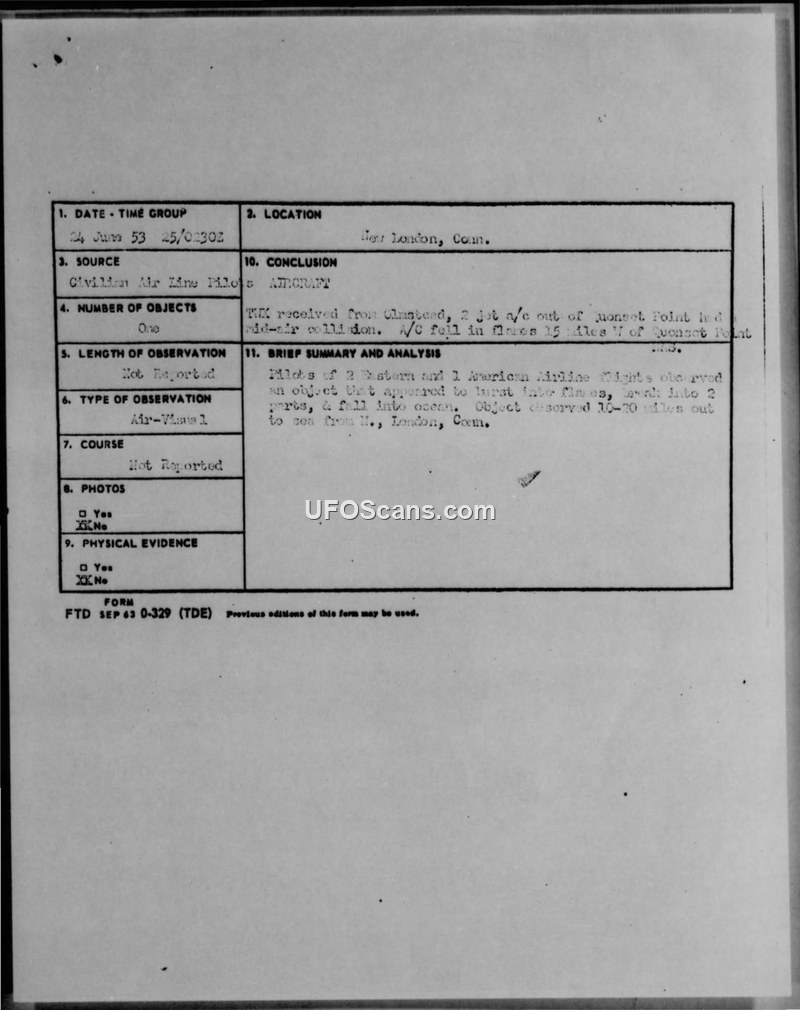 1. DATE - TIME GROUP
24 June 53 25/0230Z
2. LOCATION
New London, Conn.
3. SOURCE
Civilian Air Line Pilots
10. CONCLUSION
AIRCRAFT
TWX received from Olmstead, 2 jet a/c out of Quonset Point had
mid-air collision. A/C fell in flames 15 miles W of Quonset Point
4. NUMBER OF OBJECTS
One
5. LENGTH OF OBSERVATION
Not Reported
11. BRIEF SUMMARY AND ANALYSIS
Pilots of 2 Eastern and 1 American Airline flights observed
an object that appeared to burst into flames, break into 2
parts, & fall into ocean. Object observed 10-20 miles out
to sea from N., London, Conn.
6. TYPE OF OBSERVATION
Air-Visual
7. COURSE
Not Reported
8. PHOTOS
□ Yes
XX No
9. PHYSICAL EVIDENCE
□ Yes
XX No
FORM
FTD SEP 63 0-329 (TDE) Previous editions of this form may be used.
UFOScans.com